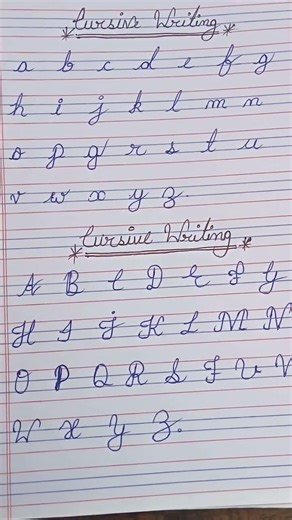 Cursive Writing
a b c d e f g
h i j k l m n
o p q r s t u
v w x y z.
Cursive Writing
A B C D E F G
H I J K L M N
O P Q R S T U V
W X Y Z.